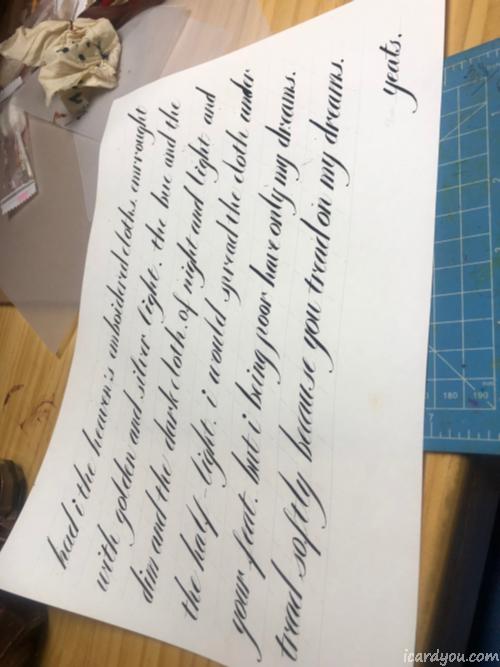 had i the heaven's emboidered cloths, enrrought
with golden and silver light. the bue and the
dim and the dark cloth. of night and light and
the half-light. i would spread the cloth under
your feat. but i being poor have only my dreams.
tread softly because you tread on my dreams.
yeats.
180
190
7
icardyou.com